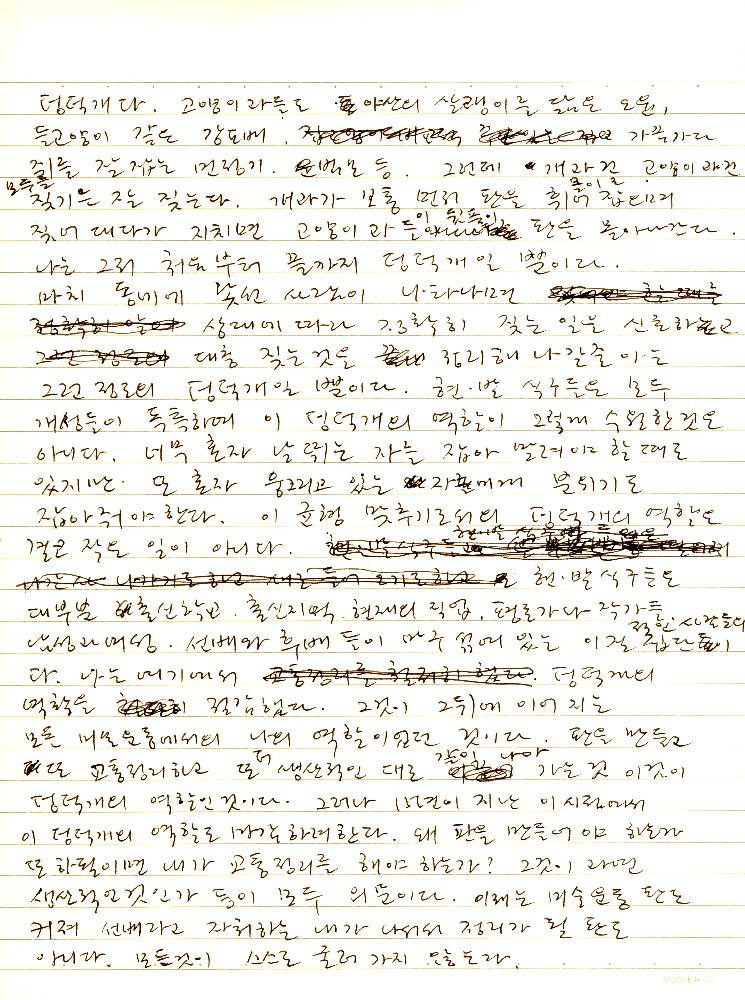 덩덕개다. 고양이과들도 야산의 살쾡이를 닮은 오윤,
들고양이 같은 강요배, 가끔가다
쥐를 잘 잡는 민정기. 성범모 등. 그런데 개과건 고양이과건 모두들
짖기는 잘 짖는다. 개과가 보통 먼저 판을 휘어 몰이로 잡으며
짖어 대다가 지치면 고양이과들이 뒷풀이 판을 몰아나간다.
나는 그저 처음부터 끝까지 덩덕개일 뿐이다.
마치 동네에 낯선 사람이 나타나면
상대에 따라 정확히 짖는 일을 신호하고
대충 짖는 것을 정리해 나갈 줄 아는
그런 정도의 덩덕개일 뿐이다. 현·발 식구들은 모두
개성들이 독특하며 이 덩덕개의 역할이 그렇게 수월한 것은
아니다. 너무 혼자 날뛰는 자를 잡아 말려야 할 때도
있지만 또 혼자 웅크리고 있는 자에게 분위기도
잡아줘야 한다. 이 균형 맞추기로서의 덩덕개의 역할은
결코 작은 일이 아니다. 현·발 식구들은
대부분 출신학교. 출신지역. 현재의 직업. 평론가나 작가들
남성과 여성. 선배와 후배들이 마구 섞여 있는 이질적인 사람들의 집단이
다. 나는 여기에서 덩덕개의
역할을 절감했다. 그것이 그 뒤에 이어지는
모든 미술운동에서의 나의 역할이었던 것이다. 판을 만들고
또 교통정리하고 또 더 생산적인 대로 같이 나아가는 것 이것이
덩덕개의 역할인 것이다. 그러나 15년이 지난 이 시점에서
이 덩덕개의 역할도 마감하려 한다. 왜 판을 만들어야 하는가
또 하필이면 내가 교통정리를 해야 하는가? 그것이 과연
생산적인 것인가 등이 모두 의문이다. 이제는 미술운동 판도
커져 선배라고 자처하는 내가 나서서 정리가 될 판도
아니다. 모든것이 스스로 굴러가지 않는다.